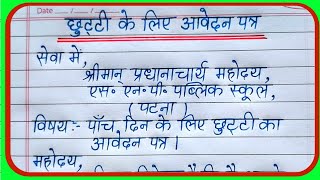 Date / /
छुट्टी के लिए आवेदन पत्र
सेवा में,
श्रीमान् प्रधानाचार्य महोदय,
एस. एन. पी. पब्लिक स्कूल,
( पटना )
विषय:- पाँच दिन के लिए छुट्टी का
आवेदन पत्र।
महोदय,